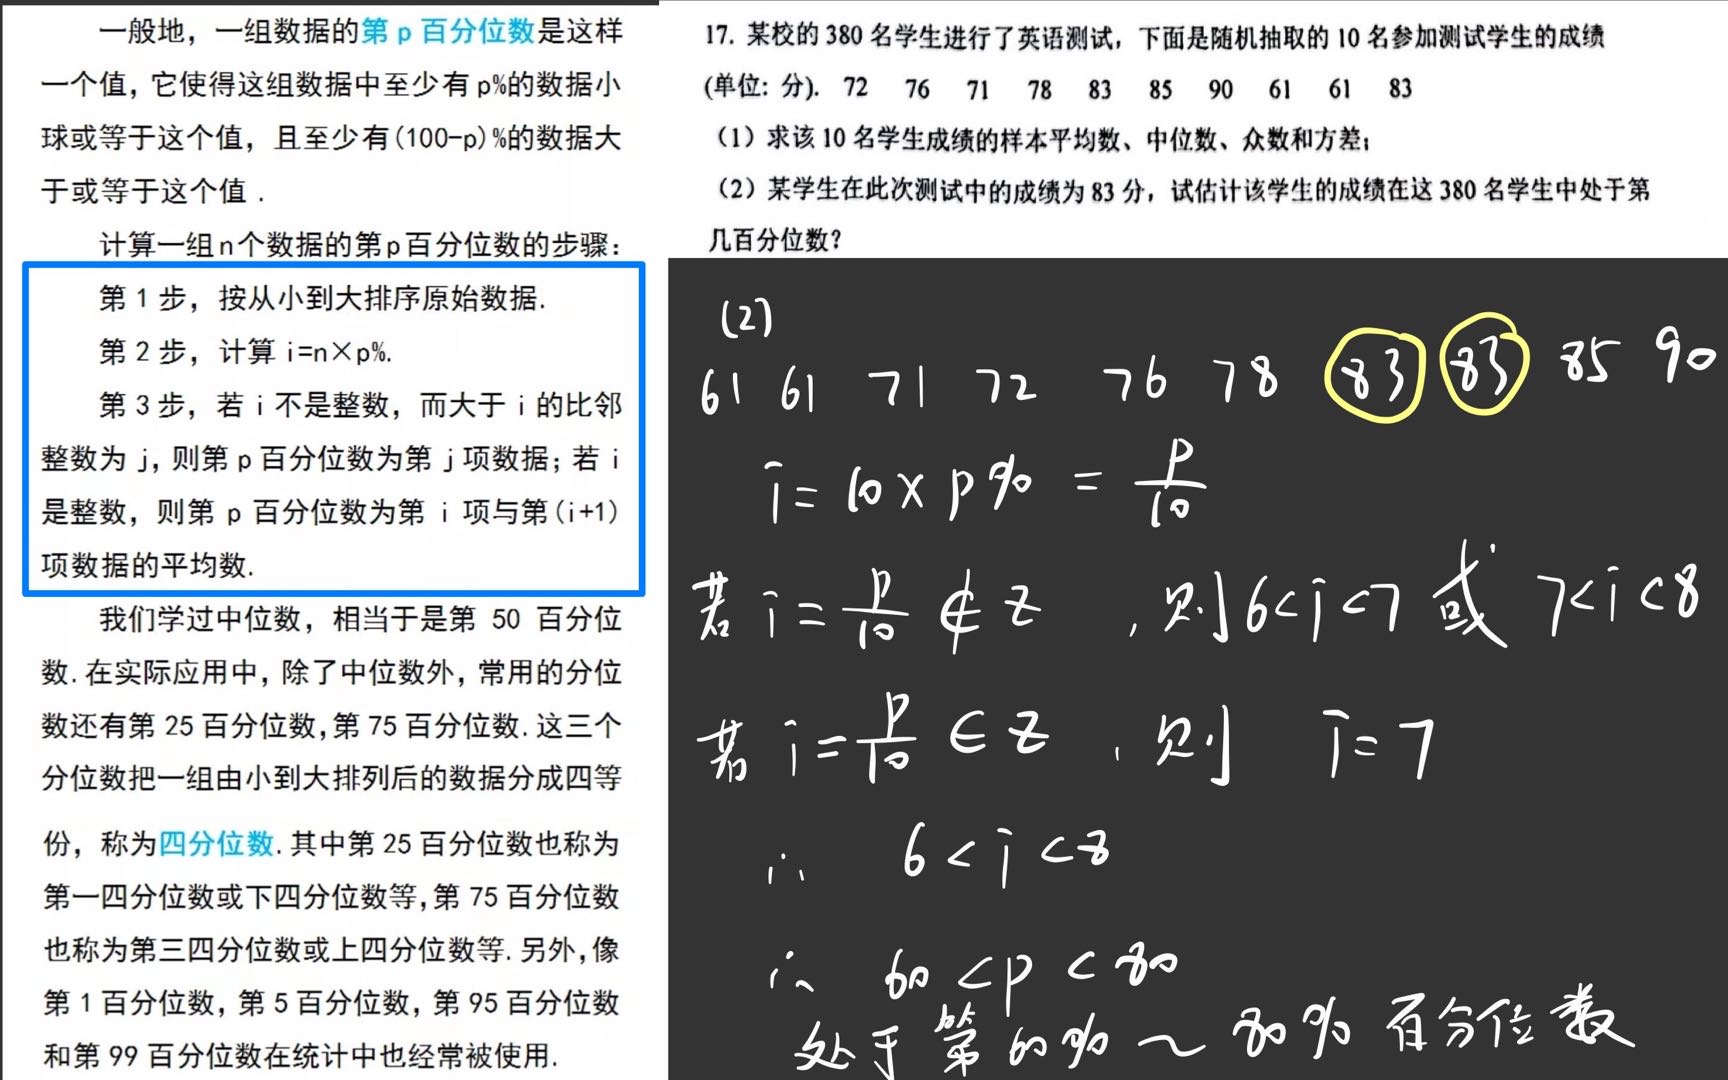 一般地，一组数据的第 p 百分位数是这样
一个值，它使得这组数据中至少有 p%的数据小
球或等于这个值，且至少有(100-p)%的数据大
于或等于这个值．
计算一组n个数据的第p百分位数的步骤：
第 1 步，按从小到大排序原始数据.
第 2 步，计算 i=n×p%.
第 3 步，若 i 不是整数，而大于 i 的比邻
整数为 j，则第 p 百分位数为第 j 项数据；若 i
是整数，则第 p 百分位数为第 i 项与第(i+1)
项数据的平均数.
我们学过中位数，相当于是第 50 百分位
数.在实际应用中，除了中位数外，常用的分位
数还有第 25 百分位数，第 75 百分位数.这三个
分位数把一组由小到大排列后的数据分成四等
份，称为四分位数.其中第 25 百分位数也称为
第一四分位数或下四分位数等，第 75 百分位数
也称为第三四分位数或上四分位数等.另外，像
第 1 百分位数，第 5 百分位数，第 95 百分位数
和第 99 百分位数在统计中也经常被使用.
17. 某校的 380 名学生进行了英语测试，下面是随机抽取的 10 名参加测试学生的成绩
(单位: 分). 72 76 71 78 83 85 90 61 61 83
（1）求该 10 名学生成绩的样本平均数、中位数、众数和方差;
（2）某学生在此次测试中的成绩为 83 分，试估计该学生的成绩在这 380 名学生中处于第
几百分位数?
(2)
61 61 71 72 76 78 83 83 85 90
i = 10 × p% = p/10
若 i = p/10 ∉ Z , 则 6<i<7 或 7<i<8
若 i = p/10 ∈ Z , 则 i=7
∴ 6 < i < 8
∴ 60 < p < 80
处于第 60% ~ 80% 百分位数